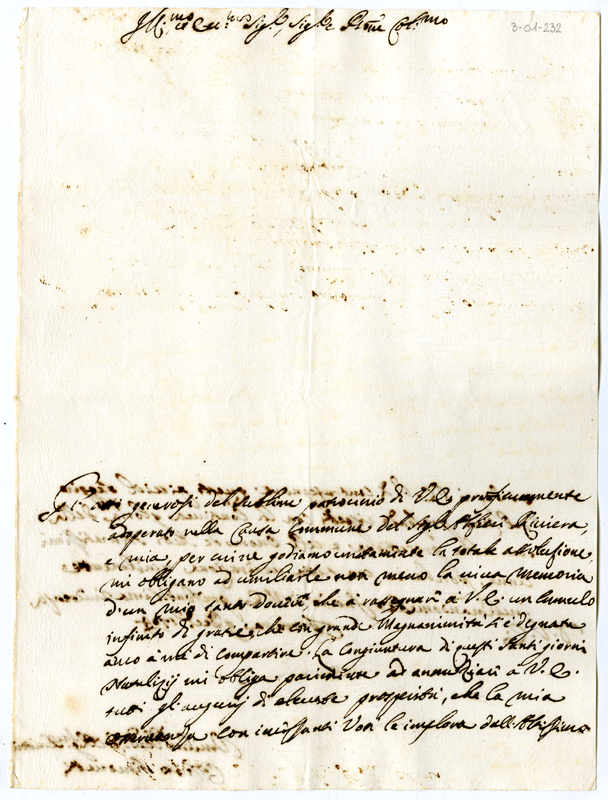 Ill.mo et Ecc.mo Sig.r, Sig.r Pron Col.mo
3-01-232
Gl'atti generosi del sublime patrocinio di V.E. proficuamente
adoperato nella Causa Commune del Sig.r Riviera,
e mia, per cui ne godiamo unitamente la totale assoluzione,
mi obligano ad umiliarle non meno la viva memoria
d'un mio che à rasegnare à V.E. un cumulo
infinito di gratie, che con grande Magnanimità s'è degnata
anco à me di compartire. La Congiuntura di questi Santi giorni
Natalizij mi obliga parimente ad annunziare à V.E.
tutti gl'augurij di eccelse prosperità, che la mia
con incessanti Voti le implora dall'Altissimo